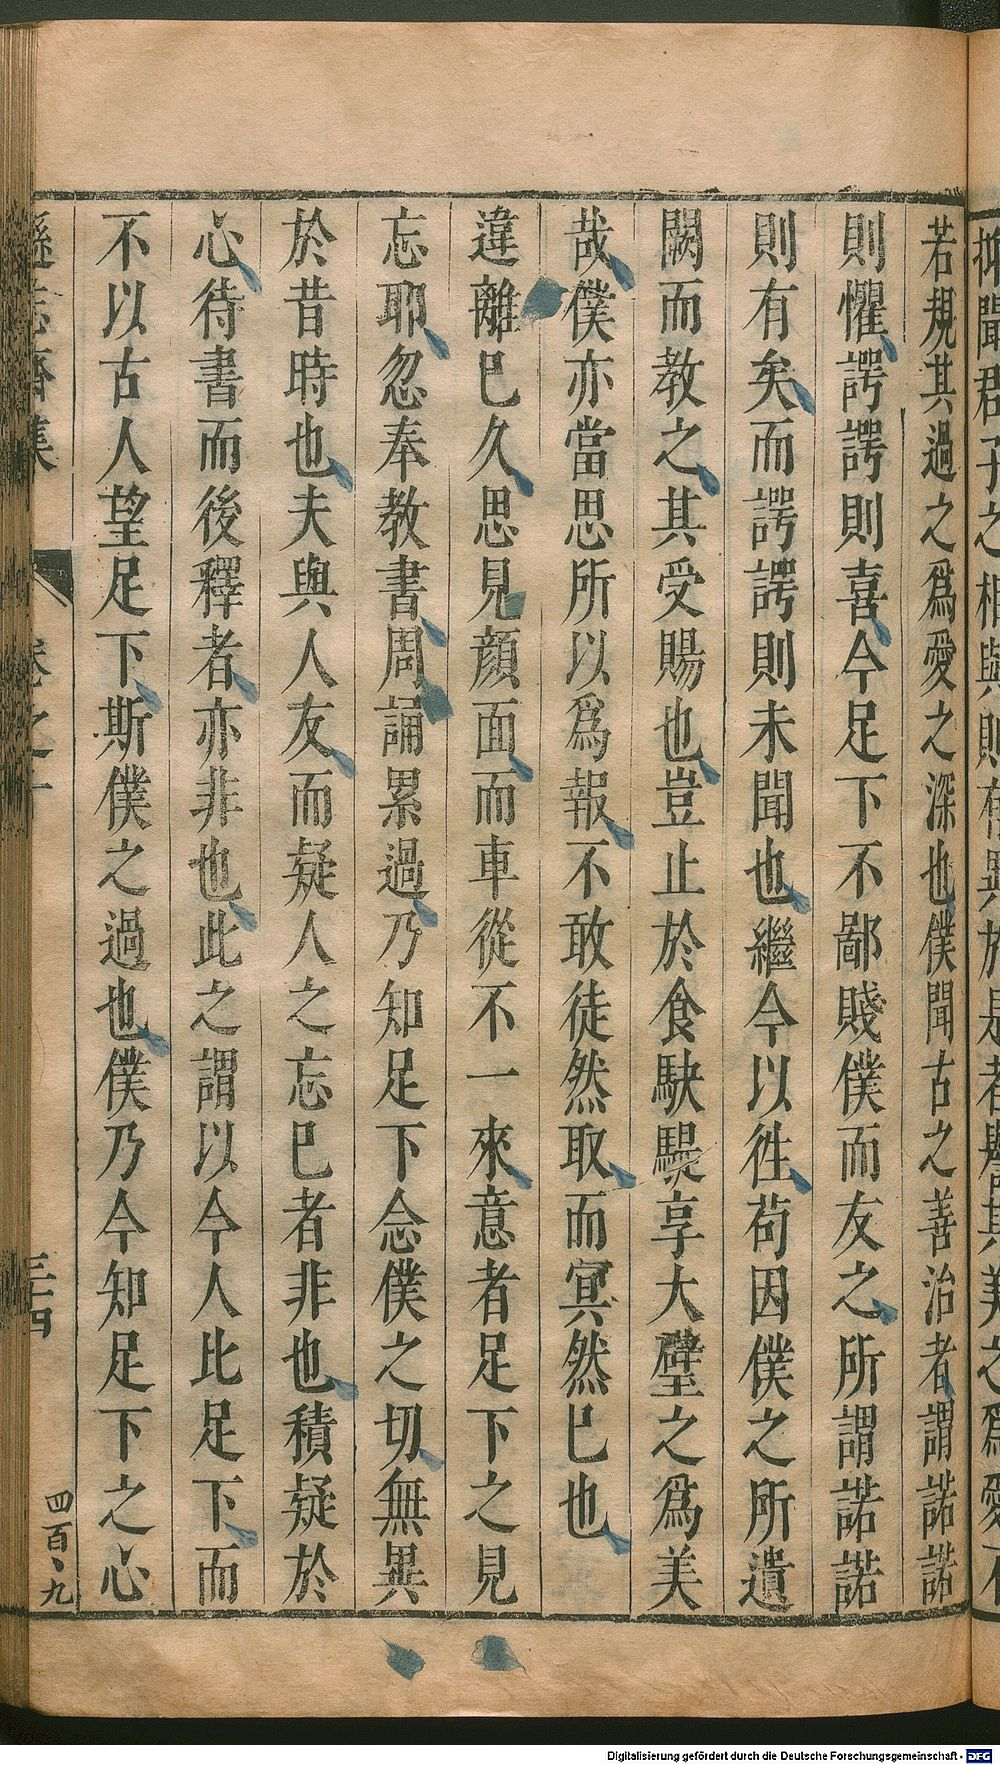 抑聞君子之相與則有異於是者譽其美之為愛不
若規其過之爲愛之深也僕聞古之善治者謂諾諾
則懼諤諤則喜今足下不鄙賤僕而友之所謂諾諾
則有矣而諤諤則未聞也繼今以徃苟因僕之所遺
闕而教之其受賜也豈止於食駃騠享大璧之爲美
哉僕亦當思所以爲報不敢徒然取而冥然已也
違離已久思見顏面而車從不一來意者足下之見
忘耶忽奉教書周誦累過乃知足下念僕之切無異
於昔時也夫與人友而疑人之忘已者非也積疑於
心待書而後釋者亦非也此之謂以今人比足下而
不以古人望足下斯僕之過也僕乃今知足下之心
遜志齋集
卷之十
三四
四百〻九
Digitalisierung gefördert durch die Deutsche Forschungsgemeinschaft - DFG